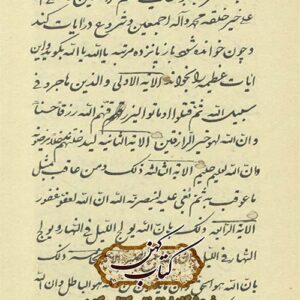 علی خیر خلقه محمد وآله اجمعین وشروع درایات کند
وچون خوانده شود باز پانزده مرتبه یاالله یاالله بکوید واین
ایات عظیمه رابخواند الایة الاولی والذین هاجروا فی
سبیل الله ثم قتلوا اوماتوا لیرزقنهم الله رزقا حسنا
وان الله لهو خیر الرازقین الایة الثانیة لیدخلنهم مدخلا یرضونه
وان الله لعلیم حلیم الایة الثالثة ذلک ومن عاقب بمثل
ماعوقب به ثم بغی علیه لینصرنه الله ان الله لعفو غفور
الایة الرابعة ذلک بان الله یولج اللیل فی النهار ویولج
النهار فی اللیل وان الله ذلک
بان الله هو الحق هو الباطل وان الله